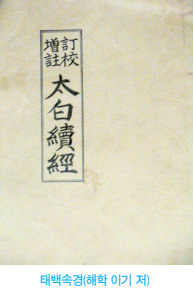 訂校
增註
太白續經
태백속경(해학 이기 저)